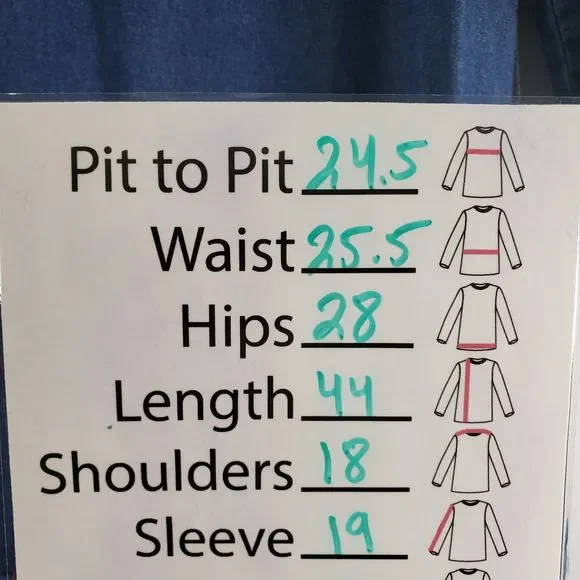 Pit to Pit 24.5
Waist 25.5
Hips 28
Length 44
Shoulders 18
Sleeve 19